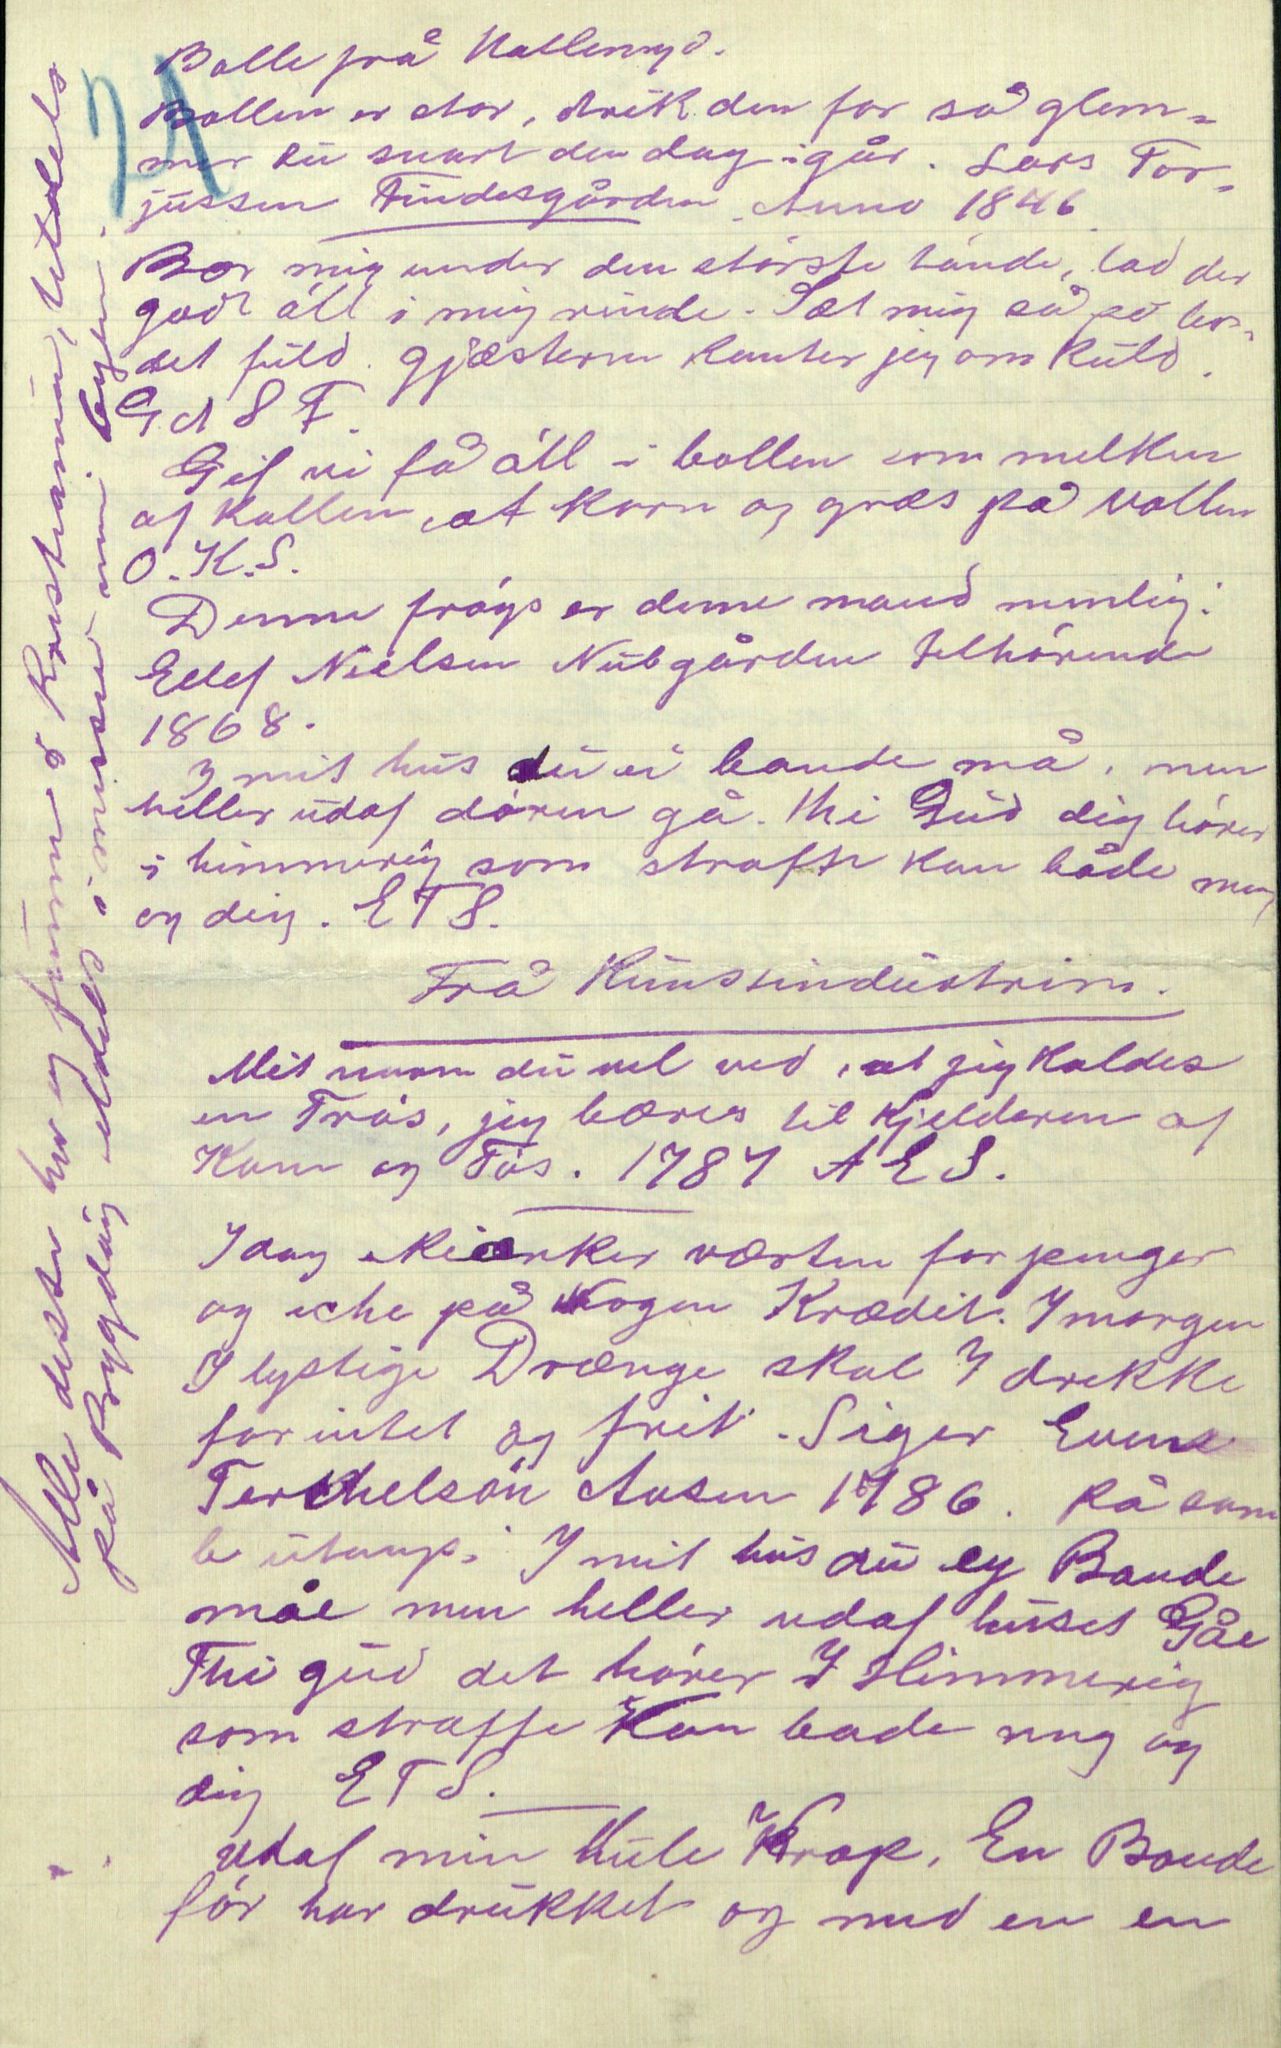 Bolle frå Kallemyd.
Bollen er stor, drik den for så glem-
mer du snart den dag igår. Lars Tor-
jussen Findesgården Anno 1846
Bær mig under den største tände, lad der
godt öll i mig rinde. Sæt mig så på bor-
det fuld. gjæsterne kanter jeg om kuld.
G A S F.
Gif vi få öll i bollen som melken
af kollen, at korn og græs på vollen
O.K.S.
Denne frögs er denne mand nemlig:
Ellef Nielsen Nubgården telhörende
1868.
I mit hus du ei bande må, men
heller udaf dören gå. thi Gud dig hörer
i himmerig som straffe kan både mig
og dig. ETS.
Frå Kunstindustrien.
Mit navn du vel ved, at jeg kaldes
en Trös, jeg bæres til Kjelderen af
Kone og Tös. 1787 A E S.
I dag skiænker værten for penger
og icke på Nogen Krædit. I morgen
I lystige Drænge skal I drekke
for intet og frit. Siger Even
Terchelsön Aasen 1786. På sam
I mit hus du ey Bande
måe men heller udaf huset Gåe
Thi gud det hörer I Himmerig
som straffe Kan bade mig og
dig E T S.
Udaf min hule Krop, En Bonde
för har drukket og med en en
Alle desse har eg funne å Kristianin, letdels
på Bygdöy utdels i minnesam i byen.
2A